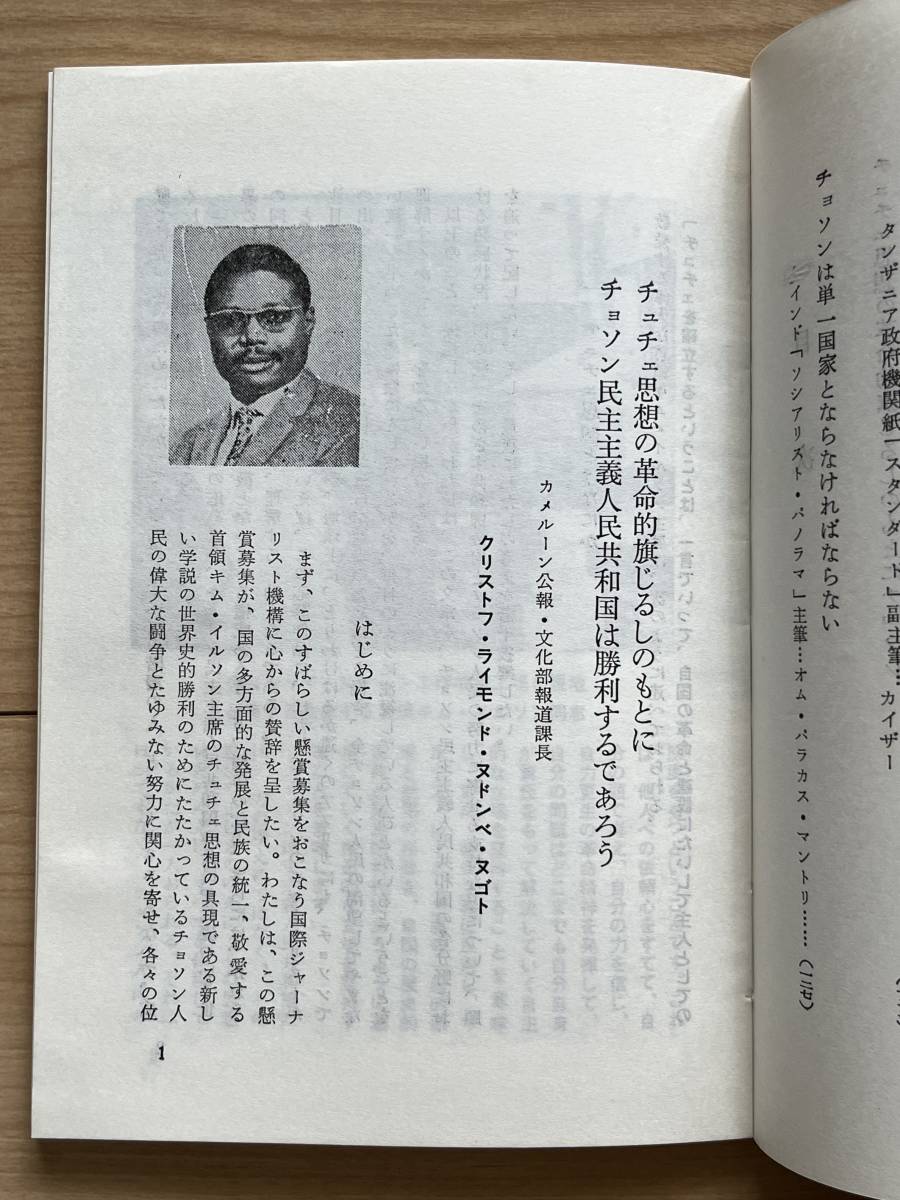 チュチェ思想の革命的旗じるしのもとに
チョソン民主主義人民共和国は勝利するであろう
カメルーン公報・文化部報道課長
クリストフ・ライモンド・ヌドンベ・ヌゴト
はじめに
まず、このすばらしい懸賞募集をおこなう国際ジャーナ
リスト機構に心からの賛辞を呈したい。わたしは、この懸
賞募集が、国の多方面的な発展と民族の統一、敬愛する
首領キム・イルソン主席のチュチェ思想の具現である新し
い学説の世界史的勝利のためにたたかっているチョソン人
民の偉大な闘争とたゆみない努力に関心を寄せ、各々の位
1
タンザニア政府機関紙「スタンダード」副主筆…カイザー
チョソンは単一国家とならなければならない
インド「ソシアリスト・パノラマ」主筆…オム・パラカス・マントリ……（一二七）